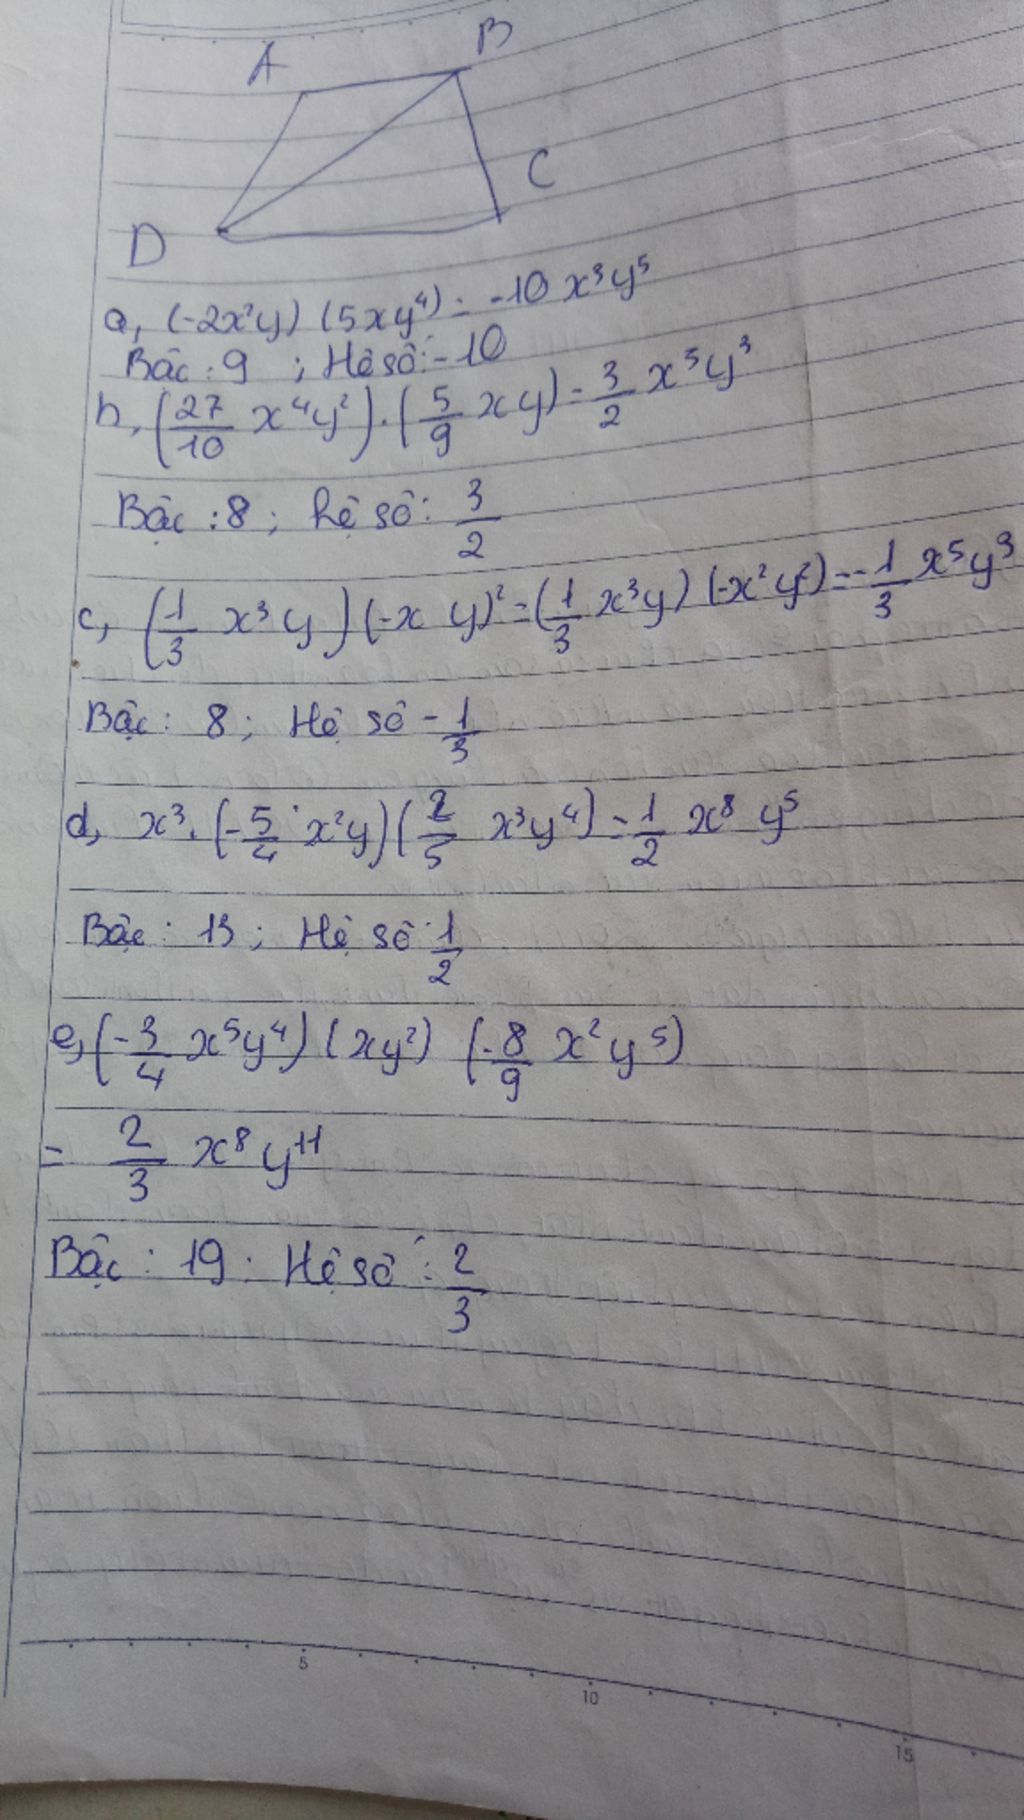 A
B
C
D
a, (-2x²y) (5xy⁴) = -10 x³y⁵
Bậc : 9 ; Hệ số : -10
b, (27/10 x⁴y²) . (5/9 xy) = 3/2 x⁵y³
Bậc : 8 ; hệ số : 3/2
c, (1/3 x³y) (-x y)² = (1/3 x³y) (-x²y²) = -1/3 x⁵y³
Bậc : 8 ; Hệ số -1/3
d, x³ . (-5/4 x²y) (2/5 x³y⁴) = 1/2 x⁸ y⁵
Bậc : 13 ; Hệ số 1/2
e, (-3/4 x⁵y⁴) (xy²) (-8/9 x² y⁵)
= 2/3 x⁸ y¹¹
Bậc : 19 : Hệ số : 2/3
5
10
15